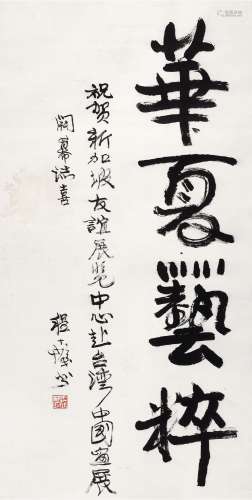 華夏藝粹
祝贺新加坡友谊展览中心赴台湾中國画展
開幕誌喜
程十髮书